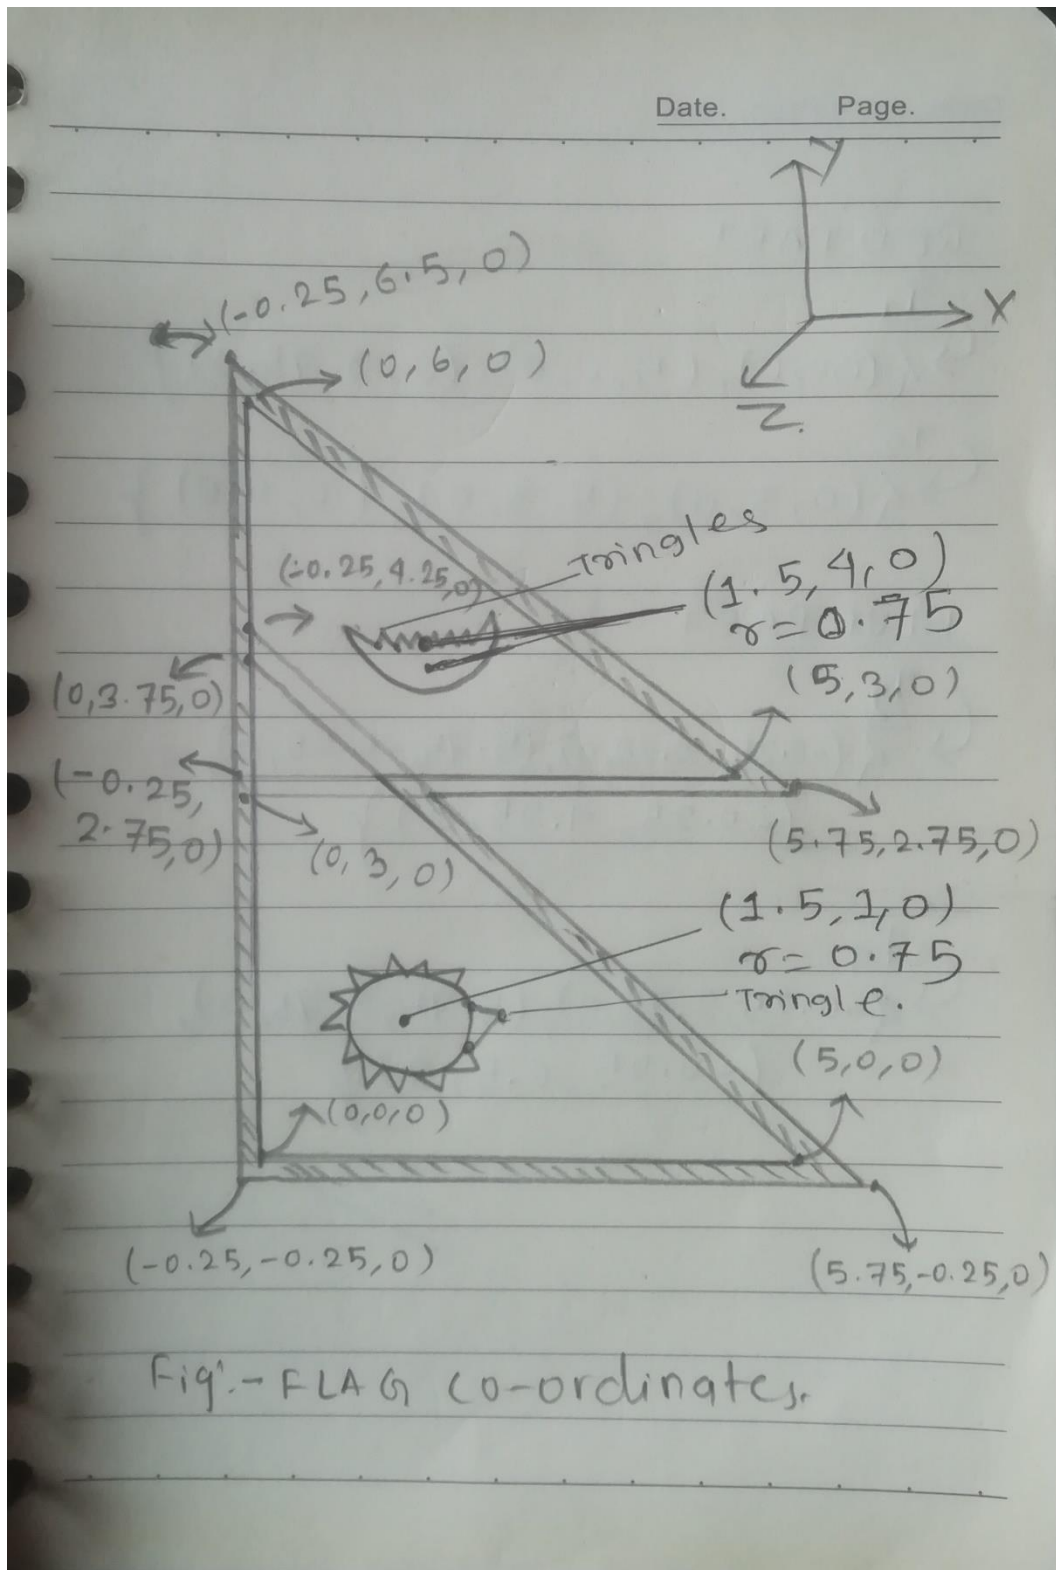 Date. Page.
y
X
Z.
(-0.25,6.5,0)
(0,6,0)
Tringles
(-0.25,4.25,0)
(1.5,4,0)
r=0.75
(0,3.75,0)
(5,3,0)
(-0.25,
2.75,0)
(0,3,0)
(5.75,2.75,0)
(1.5,1,0)
r=0.75
Tringle.
(5,0,0)
(0,0,0)
(-0.25,-0.25,0)
(5.75,-0.25,0)
Fig:-FLAG co-ordinates.